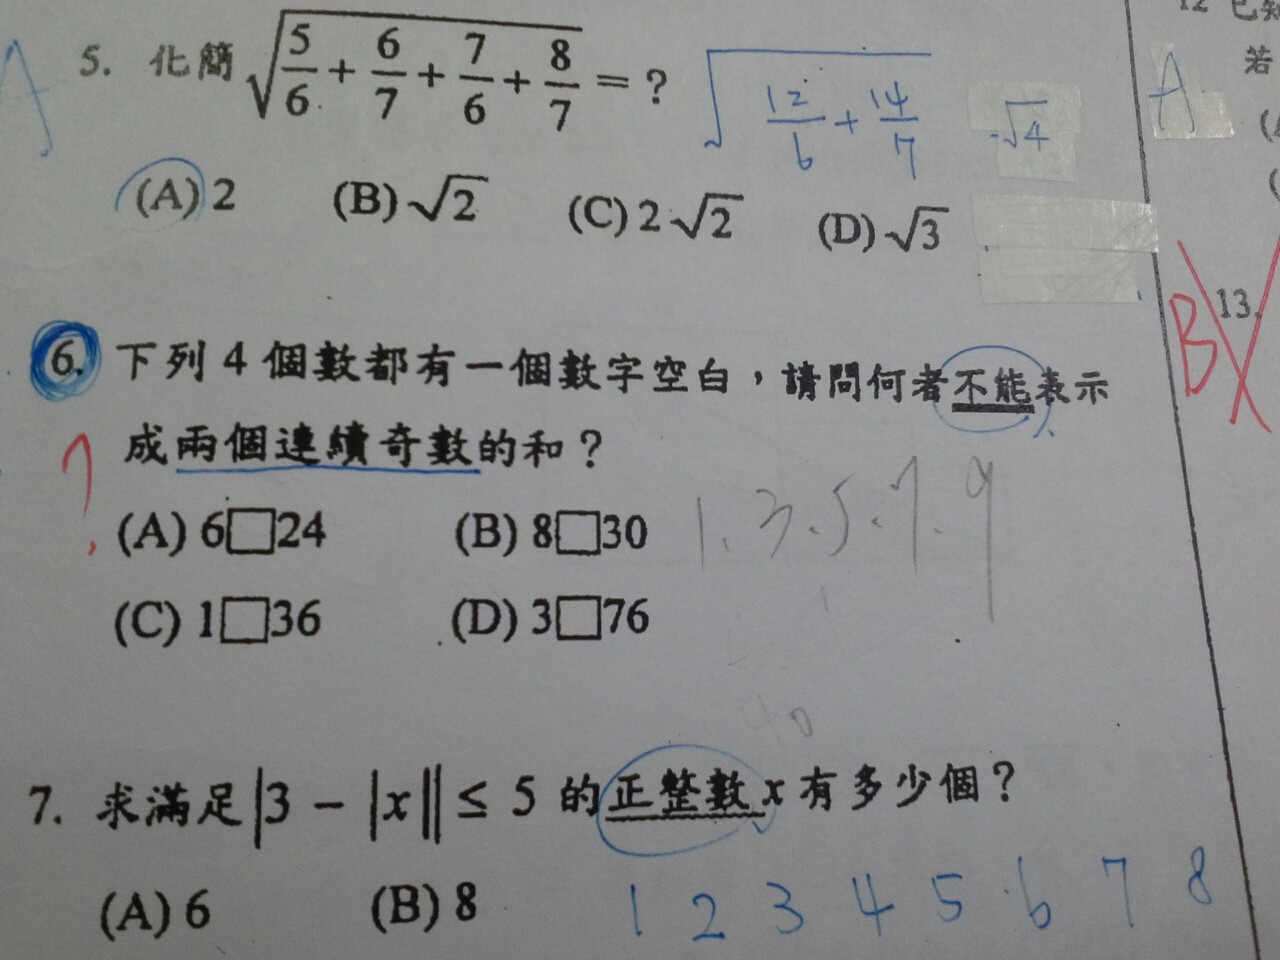 A
5. 化簡 √(5/6 + 6/7 + 7/6 + 8/7) = ?
√(12/6 + 14/7) √4
(A) 2 (B) √2 (C) 2√2 (D) √3
6. 下列 4 個數都有一個數字空白，請問何者不能表示
成兩個連續奇數的和？
?
(A) 6□24 (B) 8□30
1.3.5.7.9
(C) 1□36 (D) 3□76
7. 求滿足|3 − |x|| ≤ 5 的正整數 x 有多少個？
(A) 6 (B) 8
1 2 3 4 5 6 7 8
若
A
13.
B